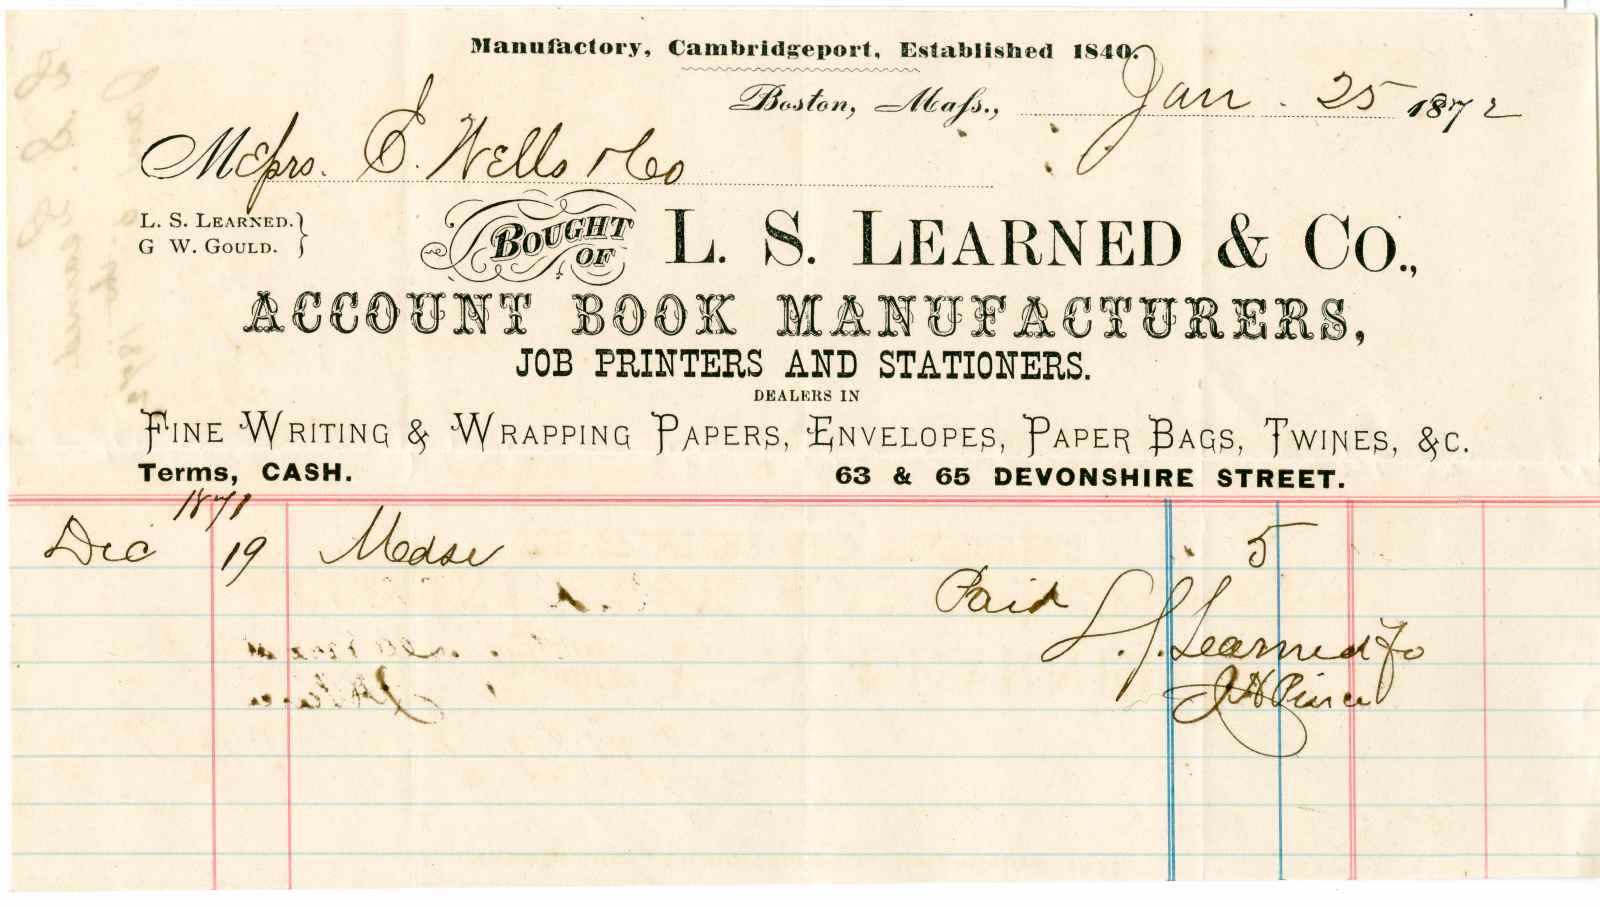 Manufactory, Cambridgeport, Established 1840.
Boston, Mass., Jan. 25 1872
Messrs. E. Wells & Co
L. S. Learned.
G W. Gould.
Bought of L. S. Learned & Co.,
Account Book Manufacturers,
Job Printers and Stationers.
Dealers in
Fine Writing & Wrapping Papers, Envelopes, Paper Bags, Twines, &c.
Terms, CASH. 63 & 65 DEVONSHIRE STREET.
1871
Dec 19 Mdse 5
Paid
L. S. Learned & Co
J H Pierce